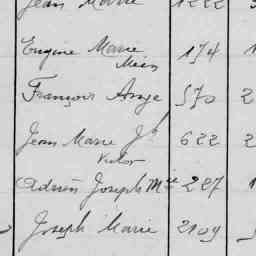 Jean Marie 1222
Eugène Marie 174 1
François Ange 570 2
Jean Marie Jh 622 2
Victor
Adrien Joseph Mie 227 1
Joseph Marie 2109